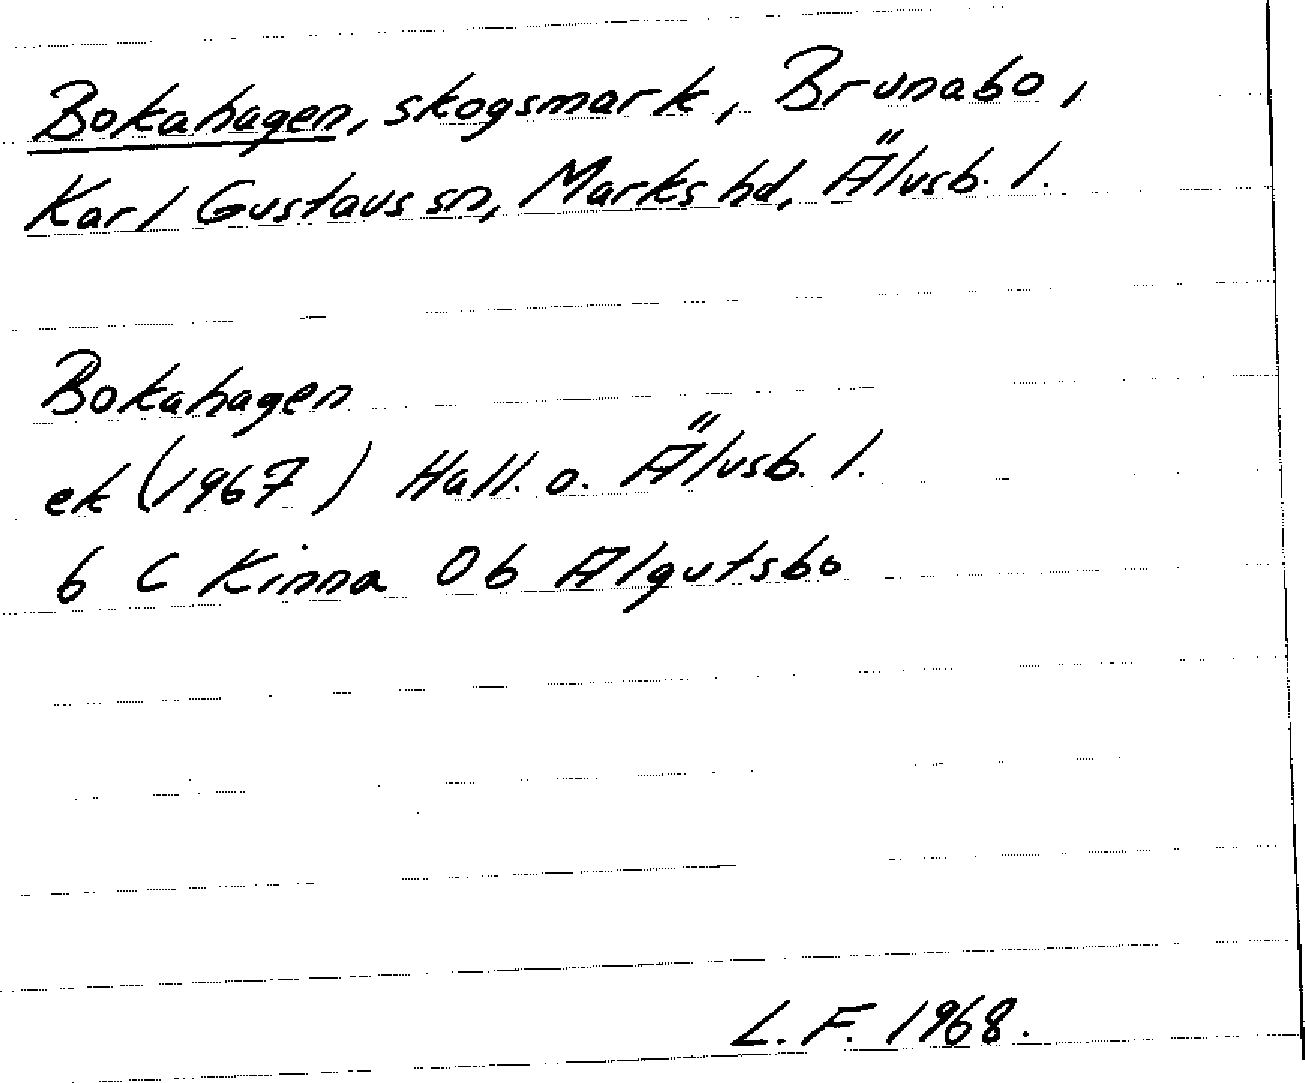 Bokahagen, skogsmark, Brunabo,
Karl Gustavs sn, Marks hd, Älvsb. l.
Bokahagen
ek (1967) Hall. o. Älvsb. l.
6 C Kinna 0b Algutsbo
L. F. 1968.